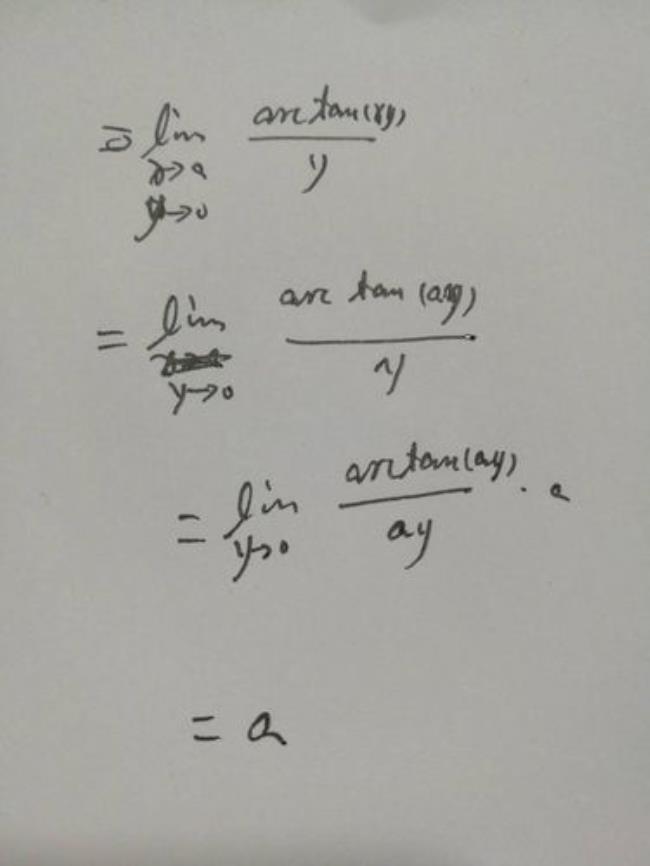 ⇒ lim x→a y→0 arctan(xy) / y
= lim y→0 arc tan (ay) / y
= lim y→0 arctan(ay) / ay · a
= a